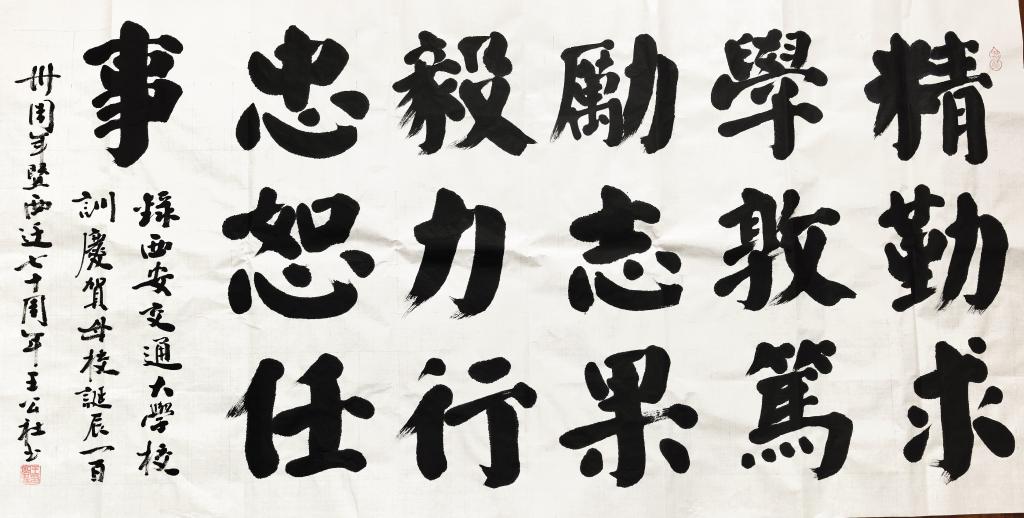 精勤求
學敦篤
勵志果
毅力行
忠恕任
事
錄西安交通大學校
訓慶賀母校誕辰一百
卅周年暨西迁七十周年王公社书